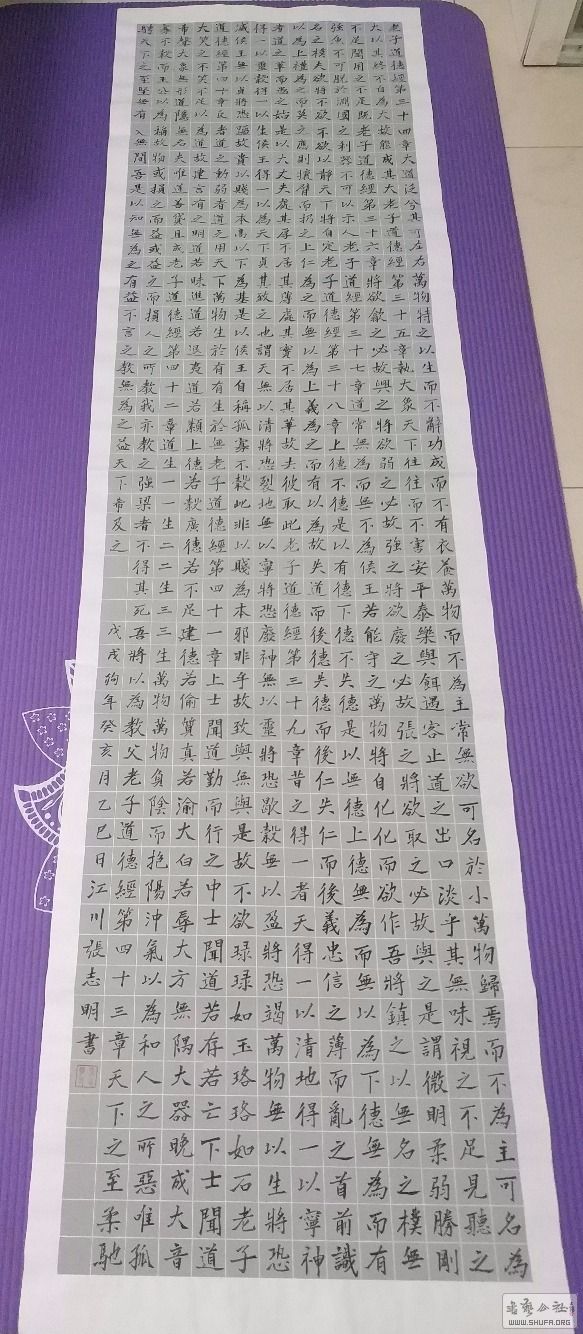 老子道德經第三十四章大道泛兮其可左右萬物恃之以生而不辭功成而不有衣養萬物而不為主常無欲可名於小萬物歸焉而不為主可名為
大以其終不自為大故能成其大老子道德經第三十五章執大象天下往往而不害安平泰樂與餌過客止道之出口淡乎其無味視之不足見聽之
不足聞用之不足既老子道德經第三十六章將欲歙之必故興之將欲弱之必故強之將欲廢之必故張之將欲取之必故與之是謂微明柔弱勝剛
強魚不可脫於淵國之利器不可以示人老子道德經第三十七章道常無為而無不為侯王若能守之萬物將自化化而欲作吾將鎮之以無名之樸無
名之樸夫欲將不欲不欲以靜天下將自定老子道德經第三十八章上德不德是以有德下德不失德是以無德上德無為而無以為下德無為而有
以為上禮為之而莫之應則攘臂而扔之上仁為之而無以為上義為之而有以為故失道而後德失德而後仁失仁而後義忠信之薄而亂之首前識
者道之華而愚之始是以大丈夫處其厚不居其薄處其實不居其華故去彼取此老子道德經第三十九章昔之得一者天得一以清地得一以寧神
得一以靈穀得一以生侯王得一以為天下貞其致之也謂天無以清將恐裂地無以寧將恐廢神無以靈將恐歇穀無以盈將恐竭萬物無以生將恐
滅侯王無以貞將恐蹶故貴以賤為本高以下為基是以侯王自稱孤寡不穀此非以賤為本邪非乎故致與無與是故不欲琭琭如玉珞珞如石老子
道德經第四十章反者道之動弱者道之用天下萬物生於有有生於無老子道德經第四十一章上士聞道勤而行之中士聞道若存若亡下士聞道
大笑之不笑不足以為道故建言有之明道若昧進道若退夷道若纇上德若穀廣德若不足建德若偷質真若渝大白若辱大方無隅大器晚成大音
希聲大象無形道隱無名夫唯道善貸且成老子道德經第四十二章道生一一生二二生三三生萬物萬物負陰而抱陽沖氣以為和人之所惡唯孤
寡不穀而王公以為稱故物或損之而益或益之而損人之所教我亦教之強梁者不得其死吾將以為教父老子道德經第四十三章天下之至柔馳
騁天下之至堅無有入無間吾是以知無為之有益不言之教無為之益天下希及之 戊戌狗年癸亥月乙巳日江川張志明書
WWW.SHUFA.ORG